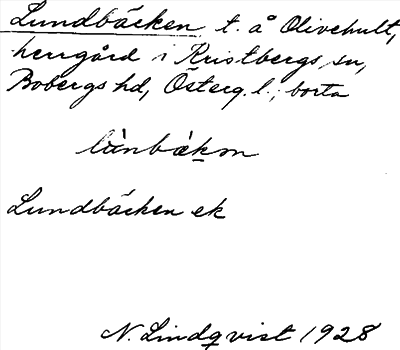 Lundbäcken t. å Olivehult,
herrgård i Kristbergs sn,
Bobergs hd, Österg. l.; borta
lùnbækən
Lundbäcken ek
N. Lindqvist 1928